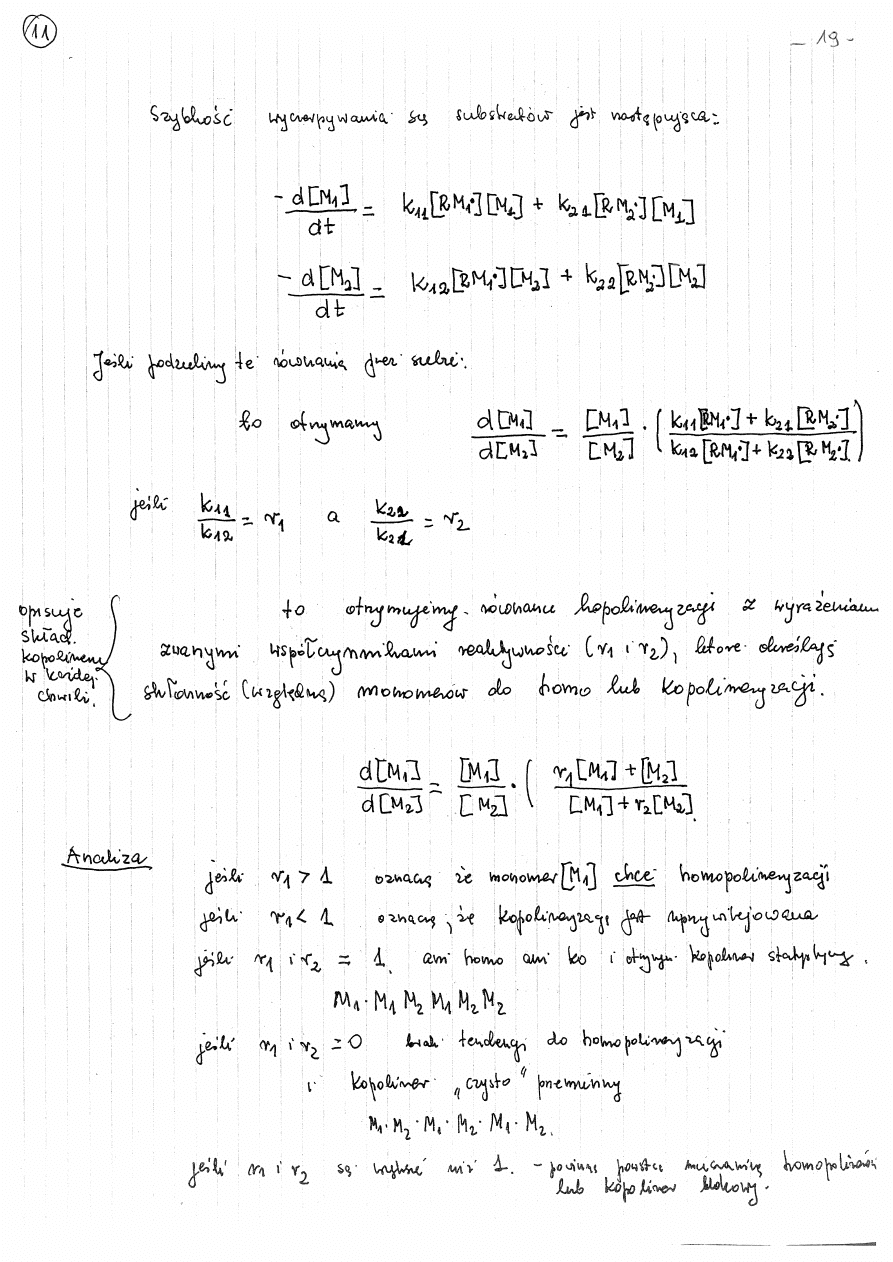 11
- 19 -
Szybkość wyczerpywania się substratów jest następująca:
- d[M₁]/dt = k₁₁[RM₁•][M₁] + k₂₁[RM₂•][M₁]
- d[M₂]/dt = k₁₂[RM₁•][M₂] + k₂₂[RM₂•][M₂]
Jeśli podzielimy te równania przez siebie:
to otrzymamy d[M₁]/d[M₂] = [M₁]/[M₂] · (k₁₁[RM₁•] + k₂₁[RM₂•] / k₁₂[RM₁•] + k₂₂[RM₂•])
jeśli k₁₁/k₁₂ = r₁ a k₂₂/k₂₁ = r₂
opisuje
skład
kopolimeru
w każdej
chwili.
to otrzymujemy równanie kopolimeryzacji z wyrażeniami
zwanymi współczynnikami reaktywności (r₁ i r₂), które określają
skłonność (względną) monomerów do homo lub kopolimeryzacji.
d[M₁]/d[M₂] = [M₁]/[M₂] · ( r₁[M₁] + [M₂] / [M₁] + r₂[M₂]
Analiza
jeśli r₁ > 1 oznacza że monomer [M₁] chce homopolimeryzacji
jeśli r₁ < 1 oznacza, że kopolimeryzacja jest uprzywilejowana
jeśli r₁ i r₂ = 1. ani homo ani ko i otrzym. kopolimer statystyczny.
M₁·M₁ M₂ M₁ M₂ M₂
jeśli r₁ i r₂ = 0 brak tendencji do homopolimeryzacji
i kopolimer „czysto" przemienny
M₁·M₂·M₁·M₂·M₁·M₂.
jeśli r₁ i r₂ są większe niż 1. - powinna powstać mieszanina homopolimerów
lub kopolimer blokowy.